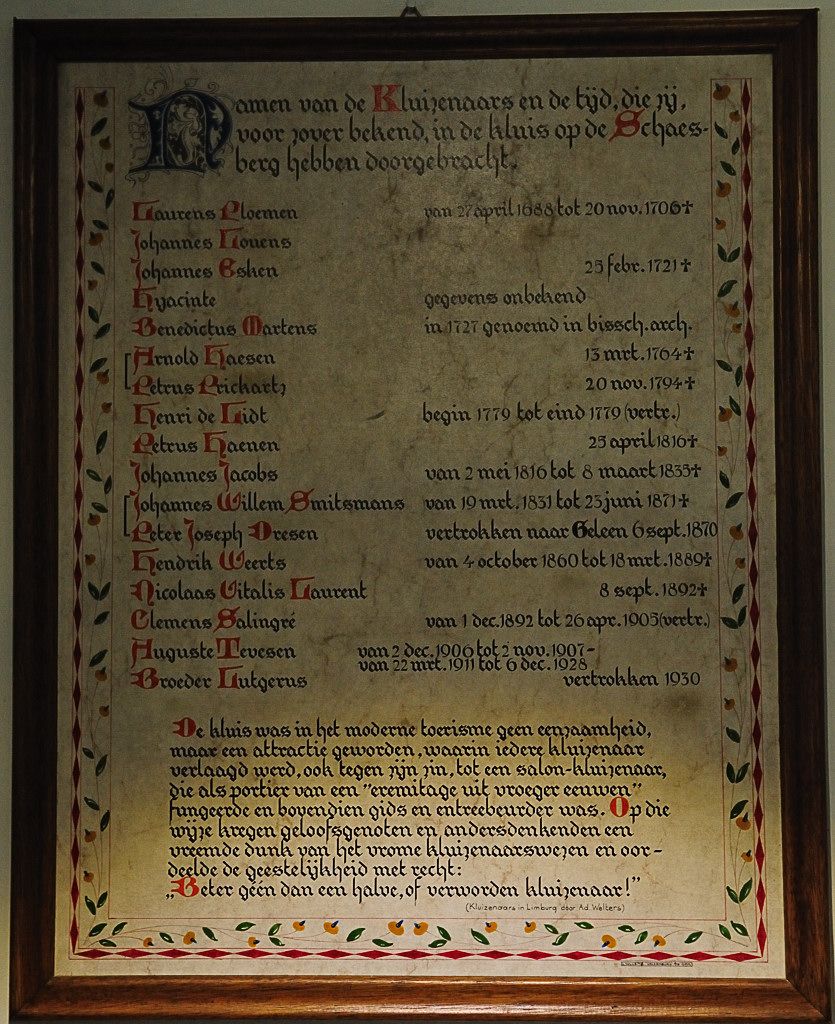 Namen van de Kluizenaars en de tijd, die zij,
voor zover bekend, in de kluis op de Schaes-
berg hebben doorgebracht.
Laurens Ploemen van 27 april 1688 tot 20 nov. 1706 †
Johannes Louens
Johannes Esken 25 febr. 1721 †
Hyacinte gegevens onbekend
Benedictus Martens in 1727 genoemd in bissch. arch.
Arnold Haesen 13 mrt. 1764 †
Petrus Prickartz 20 nov. 1794 †
Henri de Lidt begin 1779 tot eind 1779 (vertr.)
Petrus Haenen 25 april 1816 †
Johannes Jacobs van 2 mei 1816 tot 8 maart 1835 †
Johannes Willem Smitsmans van 19 mrt. 1831 tot 23 juni 1871 †
Peter Joseph Dresen vertrokken naar Geleen 6 sept. 1870
Hendrik Weerts van 4 october 1860 tot 18 mrt. 1889 †
Nicolaas Vitalis Laurent 8 sept. 1892 †
Clemens Salingré van 1 dec. 1892 tot 26 apr. 1905 (vertr.)
Auguste Tevesen van 2 dec. 1906 tot 2 nov. 1907-
van 22 mrt. 1911 tot 6 dec. 1928
Broeder Lutgerus vertrokken 1930
De kluis was in het moderne toerisme geen eenzaamheid,
maar een attractie geworden, waarin iedere kluizenaar
verlaagd werd, ook tegen zijn zin, tot een salon-kluizenaar,
die als portier van een "eremitage uit vroeger eeuwen"
fungeerde en bovendien gids en entreebeurder was. Op die
wijze kregen geloofsgenoten en andersdenkenden een
vreemde dunk van het vrome kluizenaarswezen en oor-
deelde de geestelijkheid met recht:
„Beter géén dan een halve, of verworden kluizenaar!"
(Kluizenaars in Limburg door Ad. Welters)